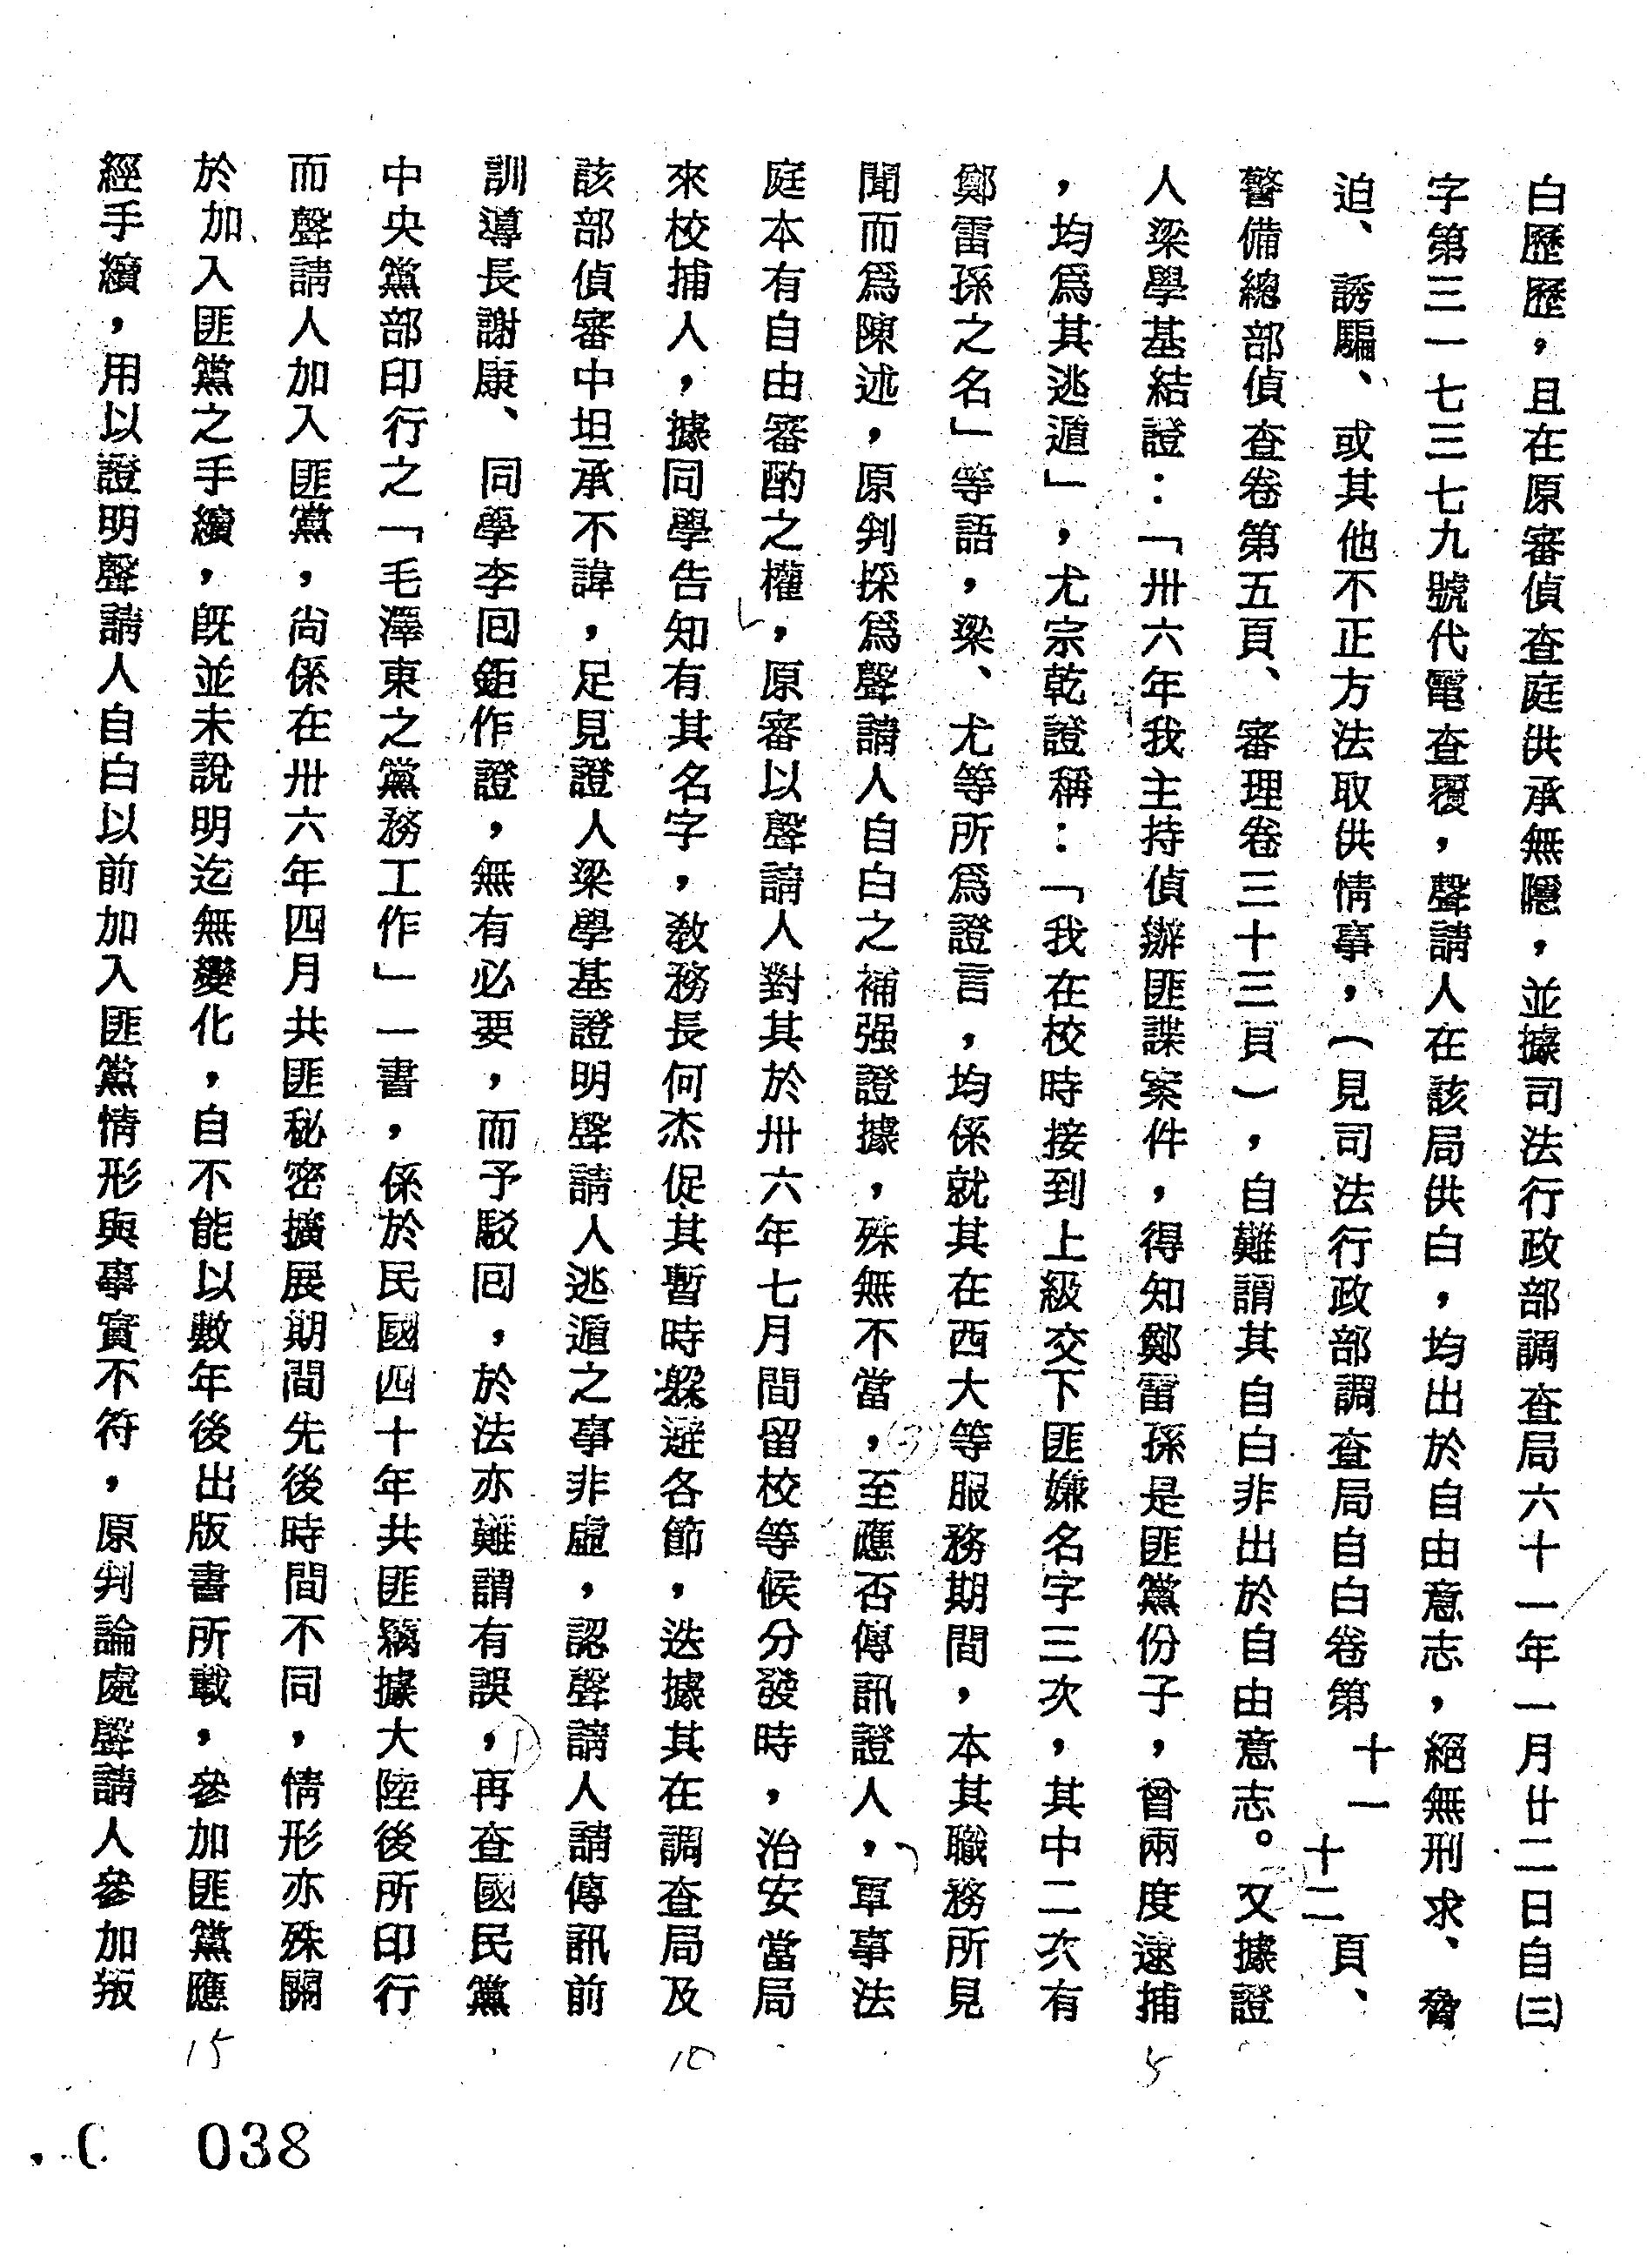 白歷歷，且在原審偵查庭供承無隱，並據司法行政部調查局六十一年一月廿二日自㈢
字第三一七三七九號代電查覆，聲請人在該局供白，均出於自由意志，絕無刑求、脅
迫、誘騙、或其他不正方法取供情事，（見司法行政部調查局自白卷第十一十二頁、
警備總部偵查卷第五頁、審理卷三十三頁），自難謂其自白非出於自由意志。又據證
人梁學基結證：「卅六年我主持偵辦匪諜案件，得知鄭雷孫是匪黨份子，曾兩度逮捕
，均爲其逃遁」，尤宗乾證稱：「我在校時接到上級交下匪嫌名字三次，其中二次有
鄭雷孫之名」等語，梁、尤等所爲證言，均係就其在西大等服務期間，本其職務所見
聞而爲陳述，原判採爲聲請人自白之補强證據，殊無不當，至應否傳訊證人，軍事法
庭本有自由審酌之權，原審以聲請人對其於卅六年七月間留校等候分發時，治安當局
來校捕人，據同學告知有其名字，敎務長何杰促其暫時躱避各節，迭據其在調查局及
該部偵審中坦承不諱，足見證人梁學基證明聲請人逃遁之事非虛，認聲請人請傳訊前
訓導長謝康、同學李回鉅作證，無有必要，而予駁回，於法亦難謂有誤，再查國民黨
中央黨部印行之「毛澤東之黨務工作」一書，係於民國四十年共匪竊據大陸後所印行
而聲請人加入匪黨，尚係在卅六年四月共匪秘密擴展期間先後時間不同，情形亦殊關
於加入匪黨之手續，旣並未說明迄無變化，自不能以數年後出版書所載，參加匪黨應
經手續，用以證明聲請人自白以前加入匪黨情形與事實不符，原判論處聲請人參加叛
5
10
15
038